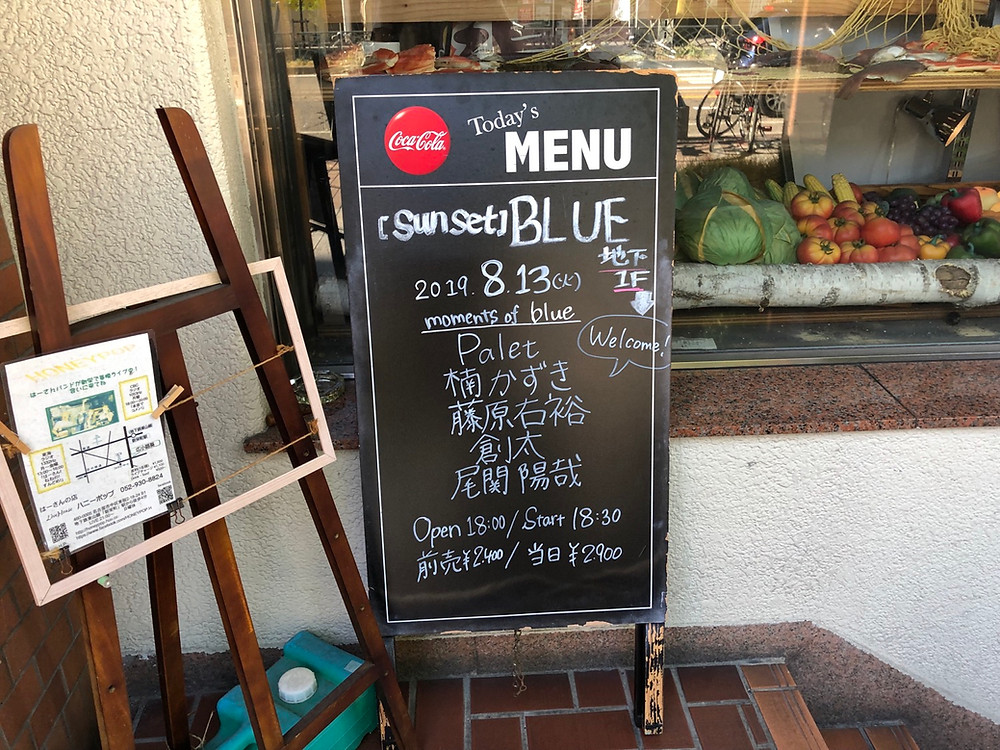 Coca-Cola
Today's
MENU
[sunset] BLUE
地下
1F
2019. 8.13(火)
moments of blue
Welcome!
Palet
楠かずき
藤原右裕
創太
尾関陽哉
Open 18:00 / Start 18:30
前売¥2,400 / 当日¥2900
HONEYPOP
はーさんの店
LiveHouse ハニーポップ 052-930-8824